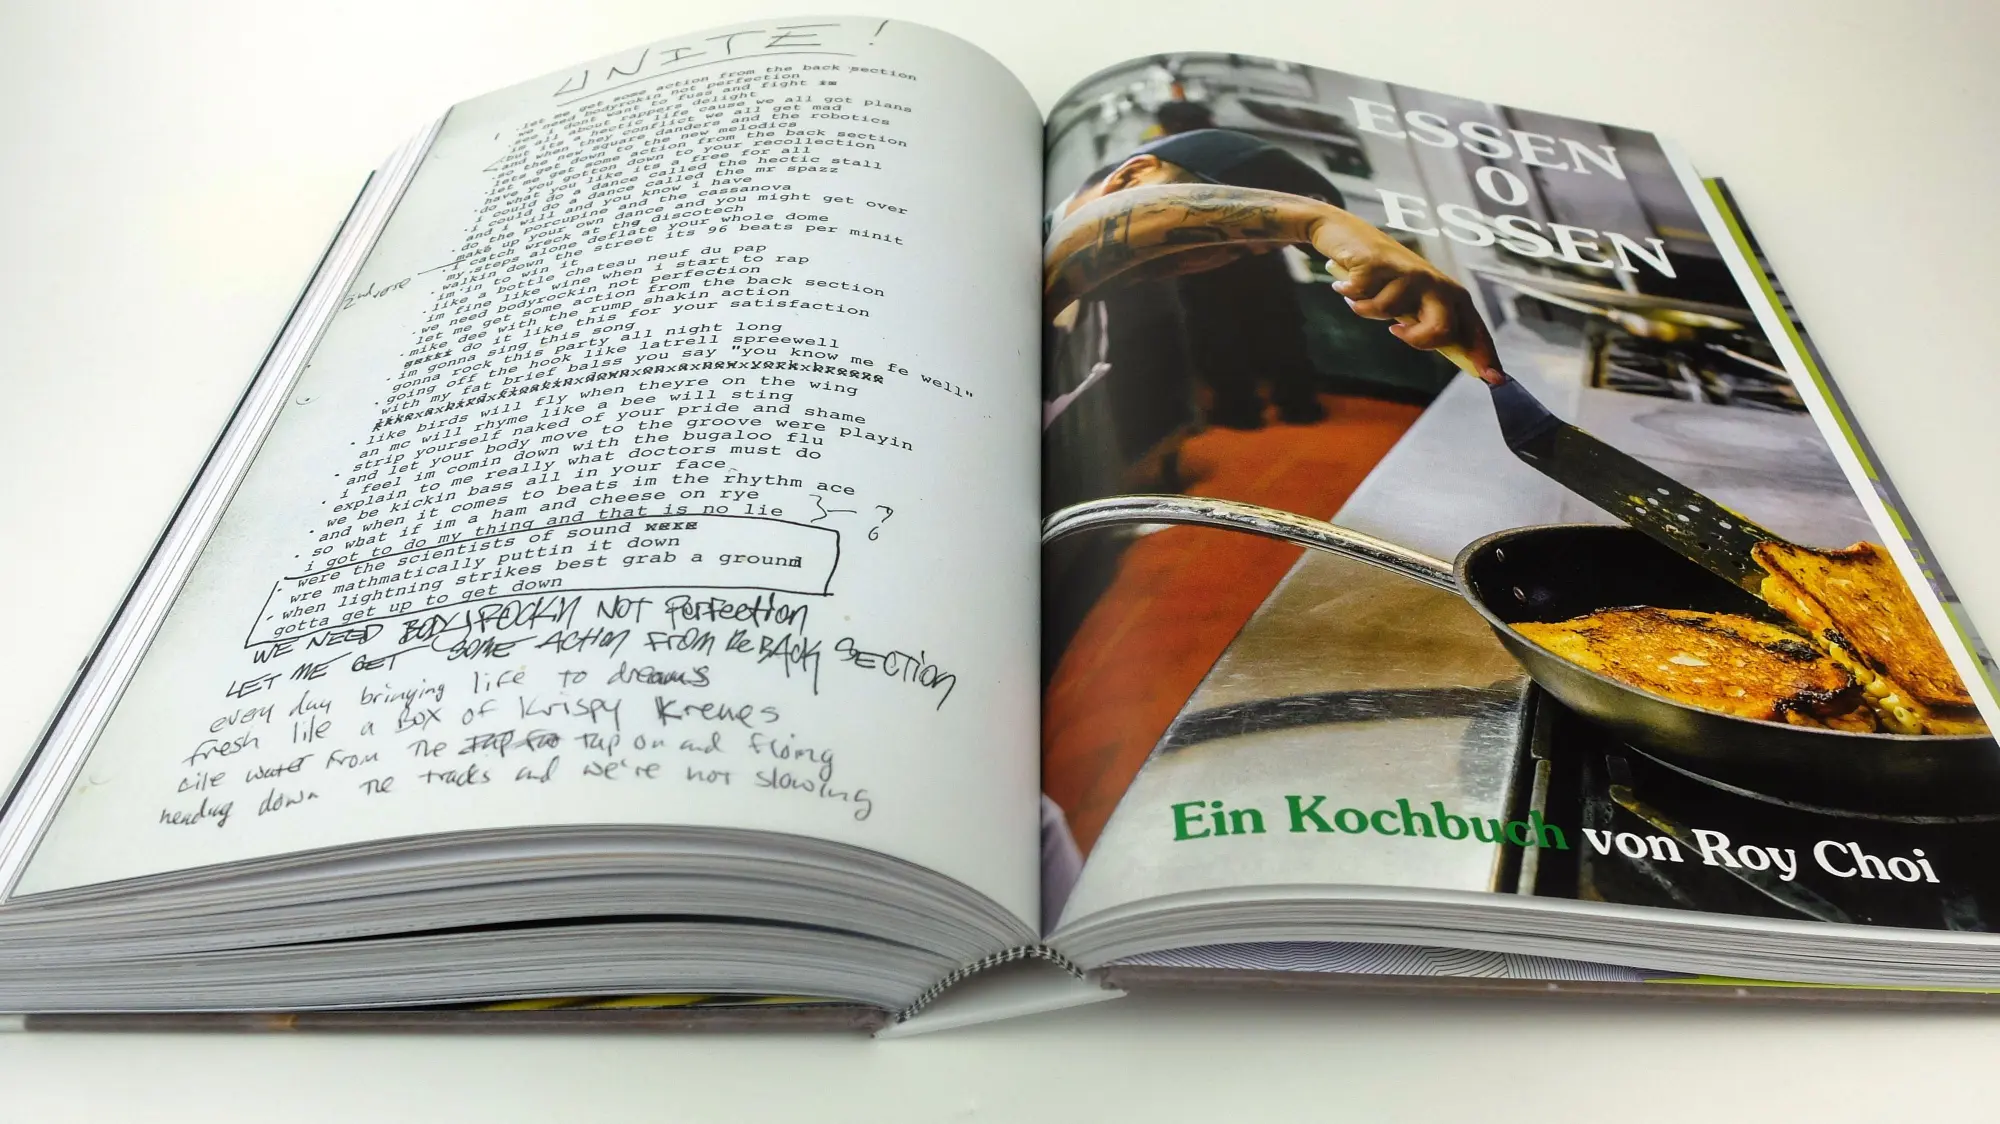 UNITE!
get some action from the back section
let me bodyrokin not perfection
we need want to fuss and fight
see i dont rappers delight
its all about hectic life cause we all got plans
in its they conflict we all get mad
but when square danders and the robotics
and the new the new melodics
so get down to action from the back section
lets get some down to your recollection
let me gotton its a free for all
have you like called the hectic stall
do what a dance called the mr spazz
i could do a you know i have
i could and you the cassanova
i will porcupine and you might get over
and the your own dance and
do up your discotech
make wreck at thg your whole dome
i catch alone deflate its 96 beats per minit
my steps the street
walkin down it
im in to win chateau neuf du pap
like a bottle when i start to rap
im fine like wine not perfection
we need bodyrockin from the back section
let me get some action
mike dee with the rump shakin action
do it like this for your satisfaction
im gonna sing this song
gonna rock this party all night long
going off the hook like latrell spreewell
with my fat brief balss you say "you know me fe well"
2nd verse
like birds will fly when theyre on the wing
an mc will rhyme like a bee will sting
strip yourself naked of your pride and shame
and let your body move to the groove were playin
i feel im comin down with the bugaloo flu
explain to me really what doctors must do
we be kickin bass all in your face
and when it comes to beats im the rhythm ace
so what if im a ham and cheese on rye
i got to do my thing and that is no lie
were the scientists of sound
wre mathmatically puttin it down
when lightning strikes best grab a ground
gotta get up to get down
WE NEED BODYROCKIN NOT PERFECTION
LET ME GET SOME ACTION FROM THE BACK SECTION
every day bringing life to dreams
fresh like a BOX of Krispy Kremes
like water from the tap on and floing
heading down the tracks and we're not slowing
ESSEN
O
ESSEN
Ein Kochbuch von Roy Choi